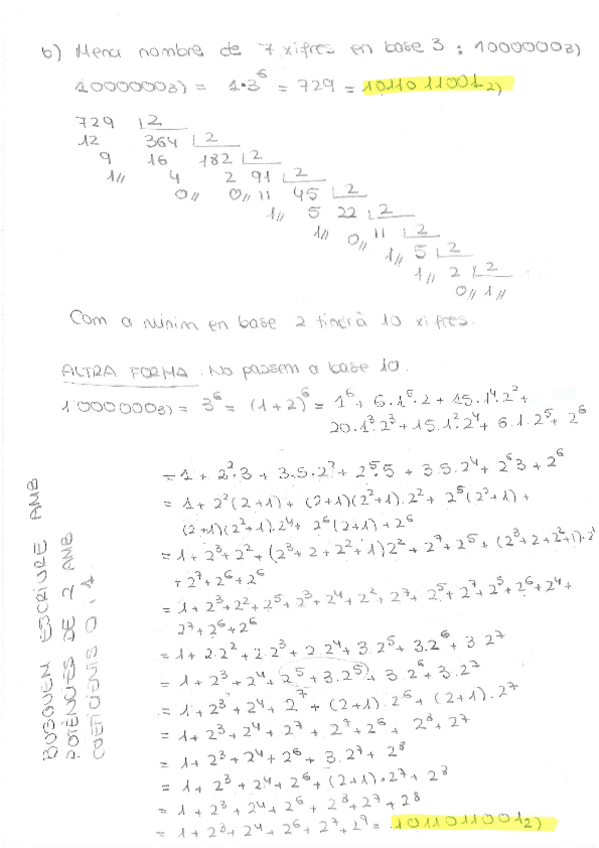 b) Menor nombre de 7 xifres en base 3 : 1000000₃)
1000000₃) = 1·3⁶ = 729 = 1011011001₂)
729 |2
12 364 |2
9 16 182 |2
1// 4 2 91 |2
0// 0// 11 45 |2
1// 5 22 |2
1// 0// 11 |2
1// 5 |2
1// 2 |2
0// 1//
Com a mínim en base 2 tindrà 10 xifres.
ALTRA FORMA. No passem a base 10.
1000000₃) = 3⁶ = (1+2)⁶ = 1⁶ + 6·1⁵·2 + 15·1⁴·2² +
20·1³·2³ + 15·1²·2⁴ + 6·1·2⁵ + 2⁶
= 1 + 2²·3 + 3·5·2² + 2⁵·5 + 3·5·2⁴ + 2⁶3 + 2⁶
= 1 + 2²(2+1) + (2+1)(2²+1)·2² + 2⁵(2²+1) +
(2+1)(2²+1)·2⁴ + 2⁶(2+1) + 2⁶
= 1 + 2³ + 2² + (2³+2+2²+1)2² + 2⁷ + 2⁵ + (2³+2+2²+1)·2⁴
+ 2⁷ + 2⁶ + 2⁶
= 1 + 2³ + 2² + 2⁵ + 2³ + 2⁴ + 2² + 2⁷ + 2⁵ + 2⁷ + 2⁵ + 2⁶ + 2⁴ +
2⁷ + 2⁶ + 2⁶
= 1 + 2·2² + 2·2³ + 2·2⁴ + 3·2⁵ + 3·2⁶ + 3·2⁷
= 1 + 2³ + 2⁴ + 2⁵ + 3·2⁵ + 3·2⁶ + 3·2⁷
= 1 + 2³ + 2⁴ + 2⁷ + (2+1)·2⁶ + (2+1)·2⁷
= 1 + 2³ + 2⁴ + 2⁷ + 2⁷ + 2⁶ + 2⁸ + 2⁷
= 1 + 2³ + 2⁴ + 2⁶ + 3·2⁷ + 2⁸
= 1 + 2³ + 2⁴ + 2⁶ + (2+1)·2⁷ + 2⁸
= 1 + 2³ + 2⁴ + 2⁶ + 2⁸ + 2⁷ + 2⁸
= 1 + 2³ + 2⁴ + 2⁶ + 2⁷ + 2⁹ = 1011011001₂)
BUSQUEM ESCRIURE AMB
POTÈNCIES DE 2 AMB
COEFICIENTS 0, 1